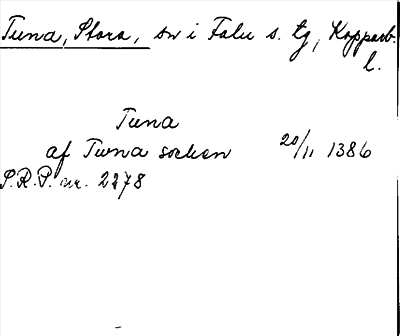 Tuna, Stora, sn i Falu s. tg, Kopparb.
l.
Tuna
af Tuna socken 20/11 1386
S.R.P. nr. 2278